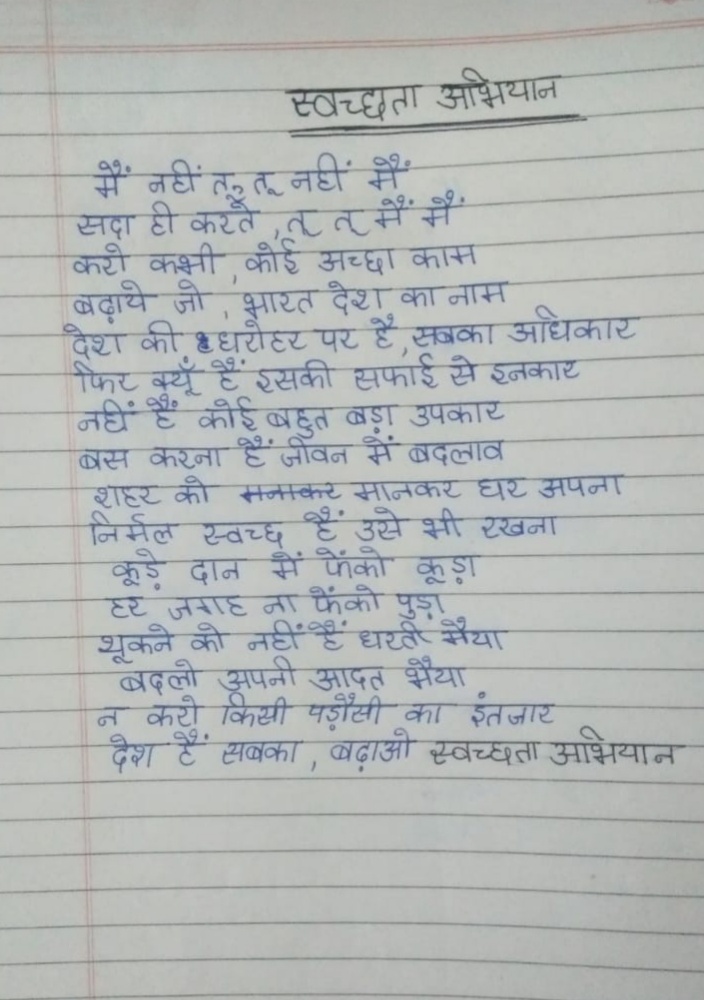 स्वच्छता अभियान
मैं नहीं तू, तू नहीं मैं
सदा ही करते, तू तू मैं मैं
करो कभी, कोई अच्छा काम
बढ़ाये जो, भारत देश का नाम
देश की धरोहर पर है, सबका अधिकार
फिर क्यूँ हैं इसकी सफाई से इनकार
नहीं हैं कोई बहुत बड़ा उपकार
बस करना हैं जीवन में बदलाव
शहर को मानकर घर अपना
निर्मल स्वच्छ हैं उसे भी रखना
कूड़े दान में फेंको कूड़ा
हर जगह ना फेंको पुड़ा
थूकने को नहीं हैं धरती मैया
बदलो अपनी आदत भैया
न करो किसी पड़ौसी का इंतजार
देश हैं सबका, बढ़ाओ स्वच्छता अभियान